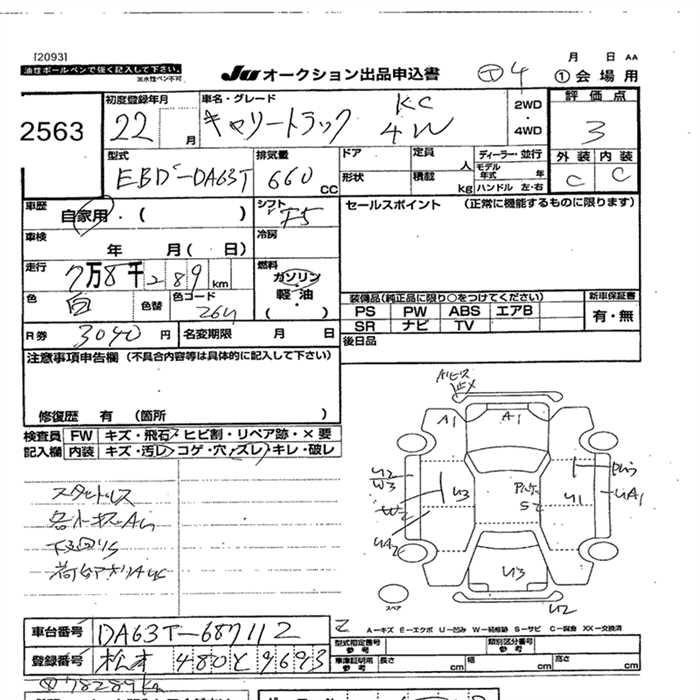 [2093]
油性ボールペンで強く記入して下さい。
※水性ペン不可
JU オークション出品申込書
T 4
月 日 AA
① 会場用
2563
初度登録年月
22 月
車名・グレード
キャリートラック KC 4W
2WD
4WD
評価点
3
型式
EBD-DA63T
排気量
660 CC
ドア
形状
定員 人
積載 kg
ディーラー・並行
モデル年式 年
ハンドル 左・右
外装 内装
C C
車歴
自家用・( )
シフト
F5
セールスポイント (正常に機能するものに限ります)
車検
年 月( 日)
冷房
走行
7万8千289 km
燃料
ガソリン・軽油・( )
色
白
色替
色コード
26U
装備品(純正品に限り○をつけてください)
新車保証書
PS PW ABS エアB
SR ナビ TV
有・無
R券 3040 円
名変期限 月 日
後日品
注意事項申告欄 (不具合内容等は具体的に記入して下さい)
修復歴 有 (箇所 )
検査員記入欄
FW キズ・飛石・ヒビ割・リペア跡・×要
内装 キズ・汚レ・コゲ・穴・スレ・キレ・破レ
スタッドレス
下回りS
A1 A1
U2
W3
U3
W2
UA2
U1
UA1
S2
U3
U2
スペア
A−キズ E−エクボ U−凹み W−補修跡 S−サビ C−腐食 XX−交換済
車台番号 DA63T-687112
登録番号 松本 480 と 9693
型式指定番号 参考
類別区分番号 参考
車庫証明用 参考
長さ cm
幅 cm
高さ cm
78289km